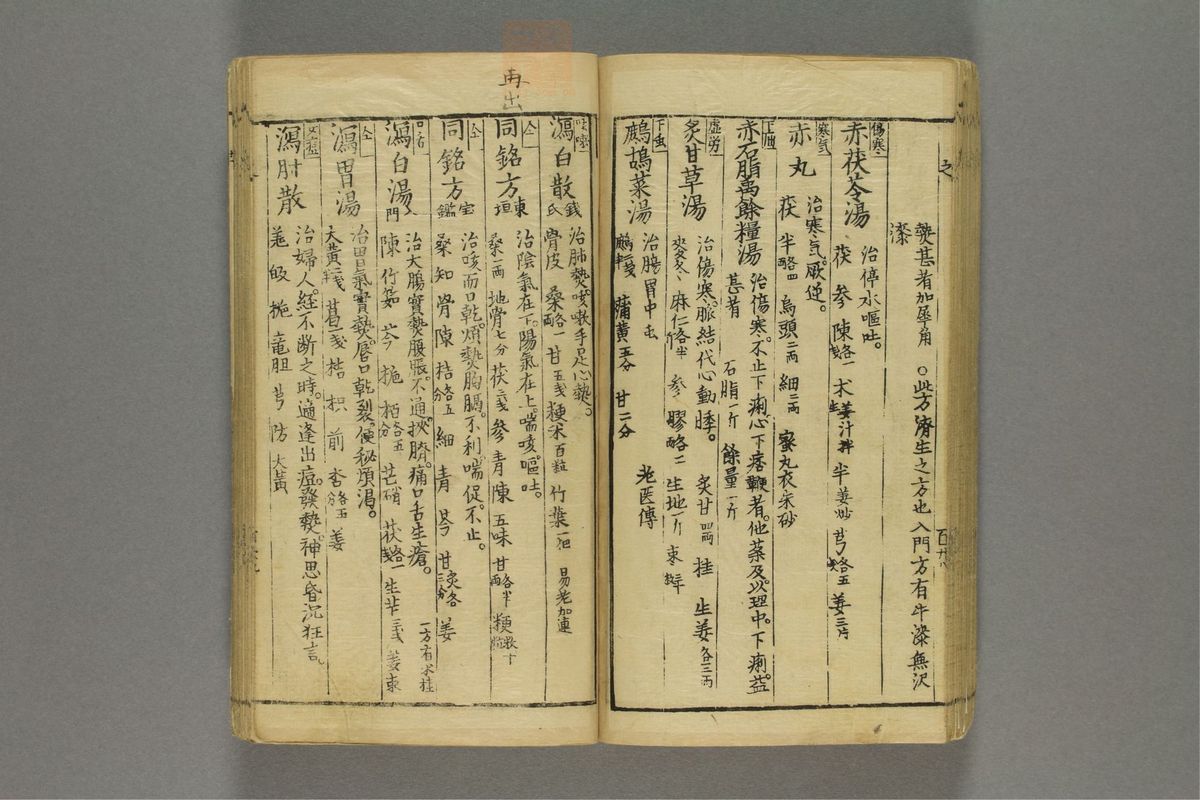 之
熱甚者加犀角 〇此方濟生之方也入門方有牛漆無沢
漆
百廿八
傷寒
赤茯苓湯 治停水嘔吐。
茯 参 陳各一 朮姜汁拌 半姜炒 芎各五 姜三片
寒気
赤丸 治寒気。厥逆。
茯 半各四 烏頭二両 細二両 蜜丸衣朱砂
赤石脂禹餘糧湯 治傷寒。不止下痢。心下痞鞭者。他薬及以理中。下痢。益
甚者 石脂一斤 餘量一斤
虚労
炙甘草湯 治傷寒。脈結代心動悸。 炙甘四両 桂 生姜各三両
麥冬 麻仁各半 参 膠各二 生地一斤 棗
下虫
鷓鴣菜湯 治腸胃中虫
鷓 蒲黄五分 甘二分 老医傳
再出
咳嗽
瀉白散錢氏 治肺熱。咳嗽手足心熱。
骨皮 桑各一 甘五戔 粳米百粒 竹葉一把 易老加連
仝
同銘方東垣 治陰氣在下。陽氣在上。喘咳。嘔吐。
桑一両 地骨七分 茯 参 青 陳 五味 甘各半両 粳
仝
同銘方宝鑑 治咳而口乾。煩熱胸膈。不利喘促。不止。
桑 知 骨 陳 桔各五分 細 青 芩 甘炙各三分 姜
口舌
瀉白湯入門 治大腸實熱腹脹。不通。挾臍。痛口舌生瘡。
陳 竹筎 芩 梔 栢各五分 芒硝 茯各一戔 生芐三戔 姜棗 一方有朮桂
仝
瀉胃湯 治胃氣實熱。唇口乾裂。便秘煩渇。
大黄 葛一戔 桔 枳 前 杏各五分 姜
瀉肝散 治婦人。経不断之時。適逢出痘。發熱。神思昏沉狂言。
羌 皈 梔 竜胆 芎 防 大黄